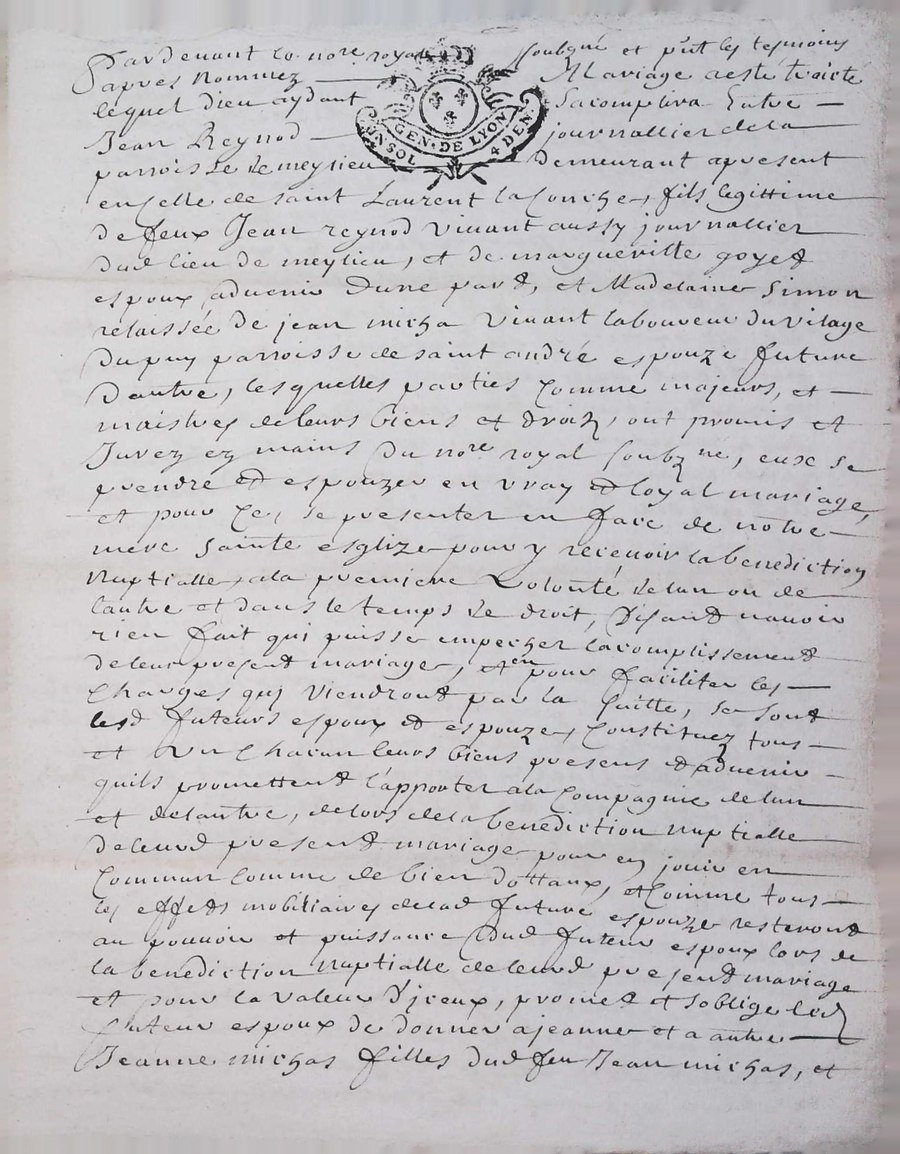 Pardevant le no.re royal soubgné et pnt les tesmoins
apres nommez mariage a esté traicte
lequel dieu aydant sacomplira Entre
Jean Reynod journallier de la
parroisse de meylieu Demeurant apresent
en selle de saint Laurent la Conche, fils legittime
de feux Jean reynod vivant aussy journallier
dud lieu de meylieu, et de margueritte goyet
espoux advenir dune part, et Madelaine Simon
relaissée de jean micha vivant laboureur du vilage
Dupuy parroisse de saint andré espouze future
Dautre, lesquelles parties Comme majeurs, et
maistres de leurs biens et droitz, ont promis et
Jurez ez mains du no.re royal soubzné, eux se
prendre et espouzer en vray et loyal mariage,
et pour Ce, se presenter en face de notre
mere sainte esglize pour y recevoir la benediction
Nuptialle, a la premiere volonté de lun ou de
lautre et dans le temps de droit, disant navoir
rien fait qui puisse empecher lacomplissement
de leur present mariage, et en pour faciliter les
Charges quj viendront par la suitte, se sont
lesd futeurs espoux et espouze, Constituez tous
et Un Chacun leurs biens presens et advenir
quils promettent l'apporter a la Compagnie de lun
et de lautre, de lors de la benediction Nuptialle
de leurd present mariage pour en jouir en
Commun Comme de bien dottaux, et Comme tous
les effets mobiliaires de lad future espouze resteront
au pouvoir et puissance dud futeur espoux lors de
la benediction Nuptialle de leurd present mariage
et pour la valeur d'jceux, promet et soblige led
futeur espoux de donner a jeanne et a autre
Jeanne michas filles dud feu Jean michas, et
GEN. DE LYON
UNSOL 4 DEN